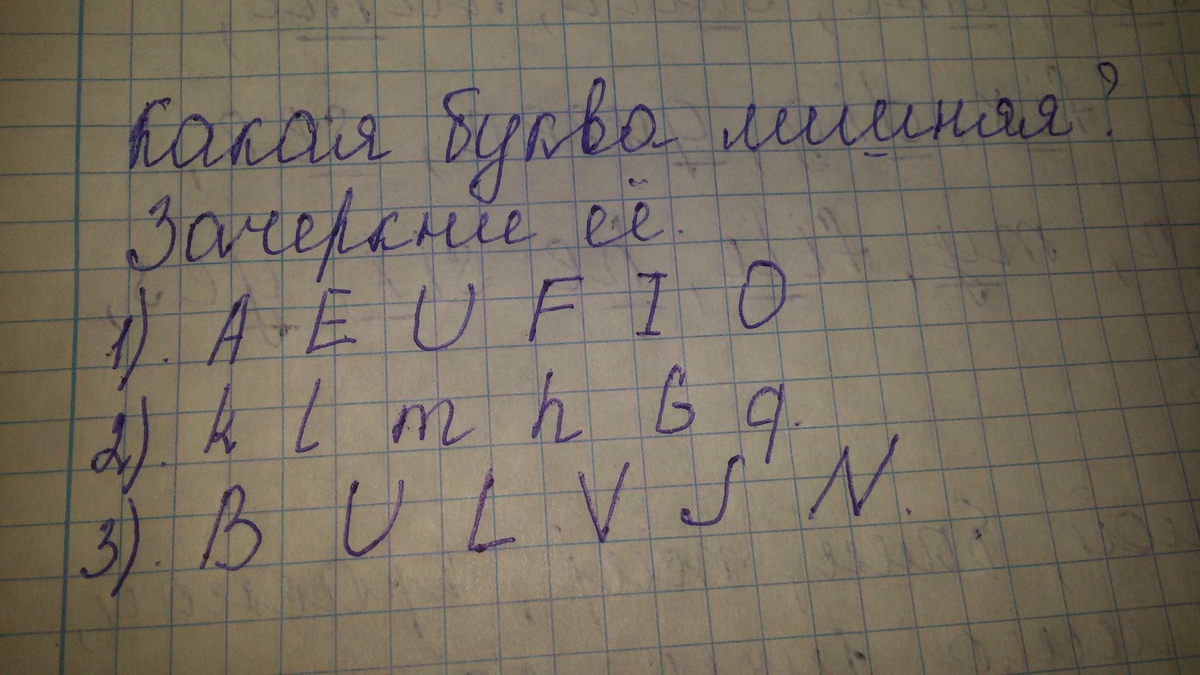 Какая буква лишняя?
Зачеркни её.
1). A E U F I O
2). k l m h G q.
3). B U L V J N.